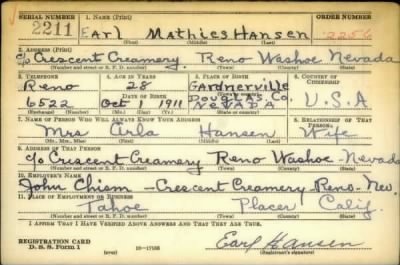 SERIAL NUMBER 1. NAME (Print) ORDER NUMBER
2211 Earl Mathies Hansen 2256
(First) (Middle) (Last)
2. ADDRESS (Print)
c/o Crescent Creamery. Reno Washoe Nevada
(Number and street or R. F. D. number) (Town) (County) (State)
3. TELEPHONE 4. AGE IN YEARS 5. PLACE OF BIRTH 6. COUNTRY OF CITIZENSHIP
Reno 28 Gardnerville
DATE OF BIRTH Douglas Co.
6522 Oct 1 1911 NEVADA U.S.A
7. NAME OF PERSON WHO WILL ALWAYS KNOW YOUR ADDRESS 8. RELATIONSHIP OF THAT PERSON
Mrs Arla Hansen Wife
(Mr., Mrs., Miss) (First) (Middle) (Last)
9. ADDRESS OF THAT PERSON
c/o Criscent Creamery Reno Washoe - Nevada
(Number and street or R. F. D. number) (Town) (County) (State)
10. EMPLOYER'S NAME
John Chism - Crescent Creamery - Reno - Nev.
11. PLACE OF EMPLOYMENT OR BUSINESS
Tahoe Placer Calif.
(Number and street or R. F. D. number) (Town) (County) (State)
I AFFIRM THAT I HAVE VERIFIED ABOVE ANSWERS AND THAT THEY ARE TRUE.
REGISTRATION CARD
D. S. S. Form 1 16-17105 Earl Hansen
(Registrant's signature)